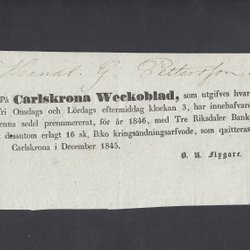 Handl. G. Pettersson
På Carlskrona Weckoblad, som utgifves hvar
Onsdags och Lördags eftermiddag klockan 3, har innehafvare
enna sedel prenumererat, för år 1846, med Tre Riksdaler Bank
dessutom erlagt 16 sk. B:ko kringsändningsarfvode, som qvitteras
Carlskrona i December 1845.
B. U. Flygare.